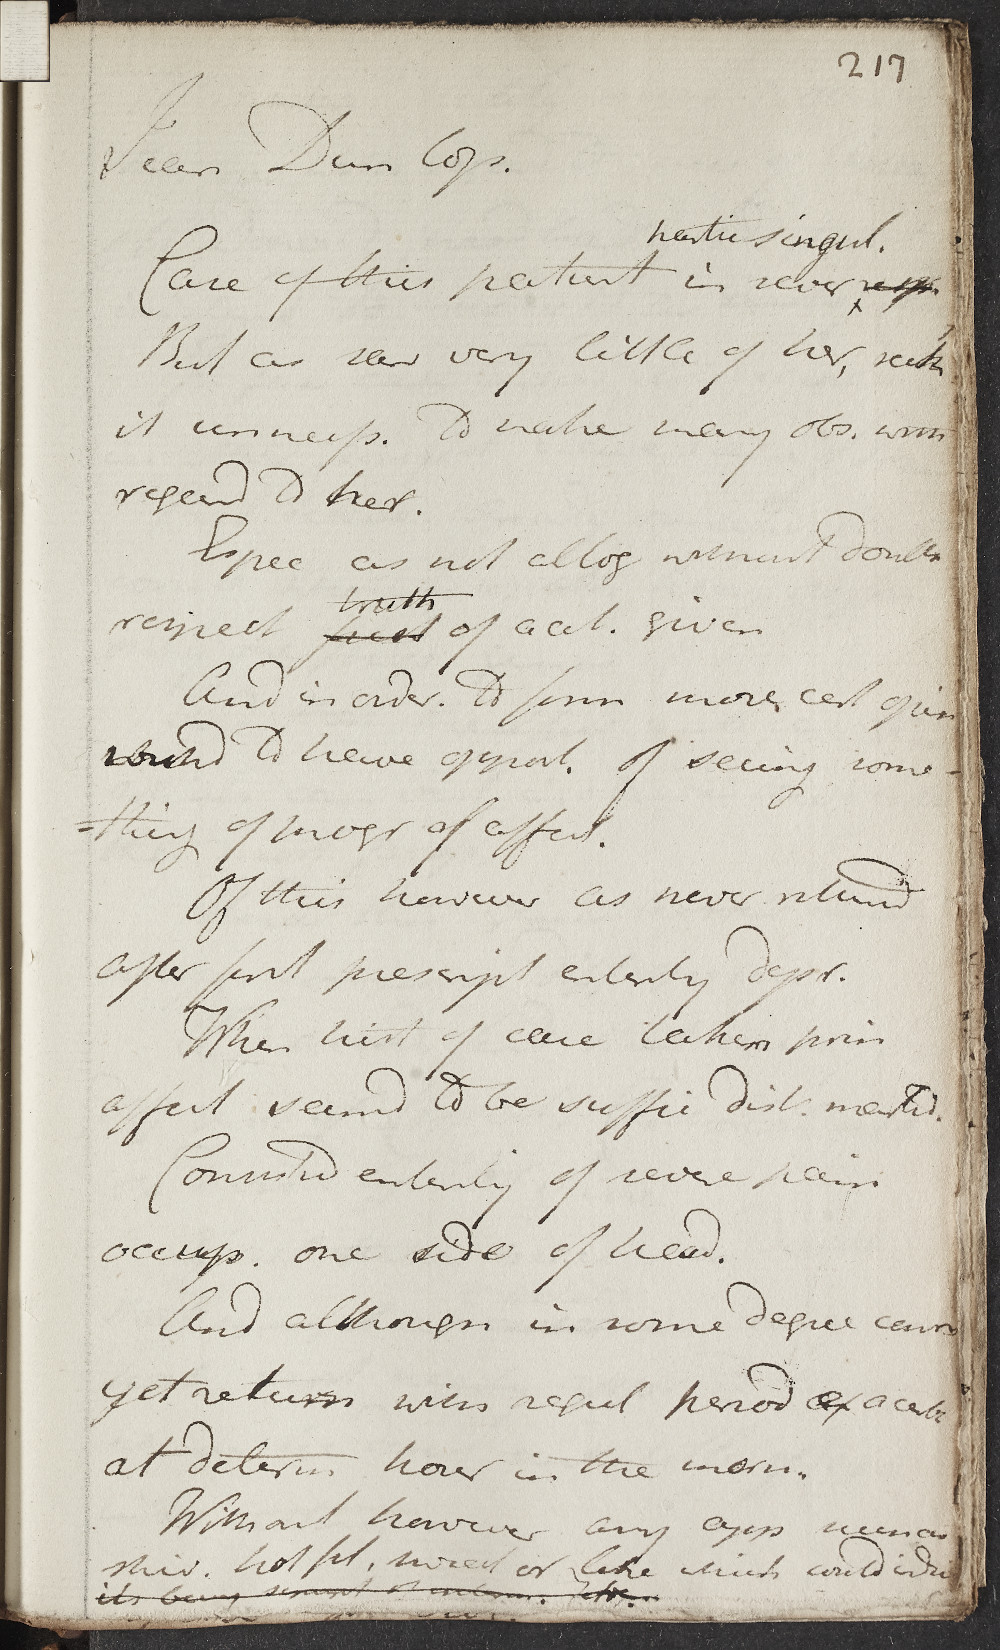 217
Jean Dunlop.
partic singul.
Case of this patient in sever
But as saw very little of her,
it unnecess. to make many obs. with
regard to her.
Espec as not altog without doubts
respect truth of acct. given
And in order. to form more cert opin
to have opport. of seeing some-
-thing of progr of affect.
Of this however as never returnd
after first prescript entirely depr.
When hist of case taken prin
affect seemd to be suffic dist. markd.
Consistd entirely of severe pain
occup. one side of head.
And although in some degree const
yet return with regul period exacerb
at determ hour in the morn.
Without however any app
shiv. hot fit, sweat or like which could indic
its being